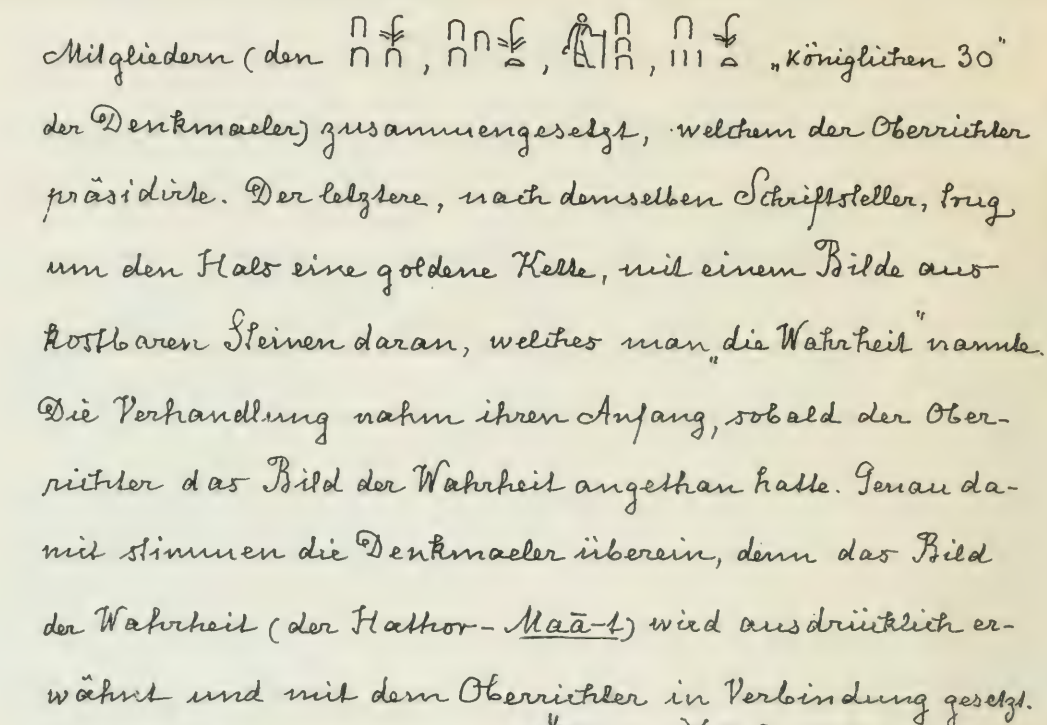 Mitgliedern (den 𓎆𓇓𓎆𓎆, 𓎆𓎆𓎆𓇓𓏏, 𓀙𓎆𓎆𓎆, 𓎆𓏤𓏤𓏤𓇓𓏏 „königlichen 30“
der Denkmaeler) zusammengesetzt, welchem der Oberrichter
präsidirte. Der letztere, nach demselben Schriftsteller, trug
um den Hals eine goldene Kette, mit einem Bilde aus
kostbaren Steinen daran, welches man „die Wahrheit“ nannte.
Die Verhandlung nahm ihren Anfang, sobald der Ober-
richter das Bild der Wahrheit angethan hatte. Genau da-
mit stimmen die Denkmaeler überein, denn das Bild
der Wahrheit (der Hathor-Maā-t) wird ausdrücklich er-
wähnt und mit dem Oberrichter in Verbindung gesetzt.